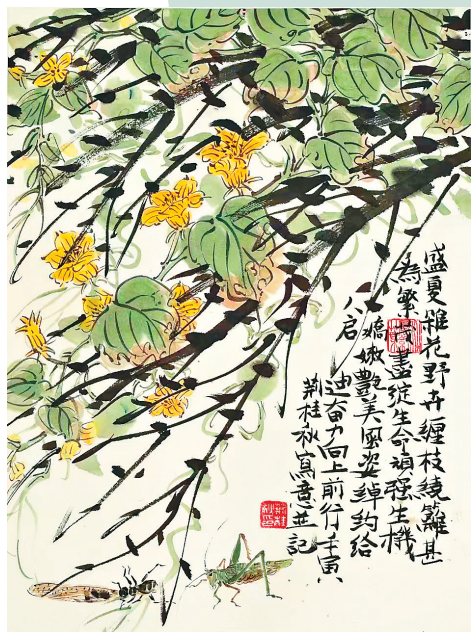 盛夏雜花野卉纏枝繞籬甚
為繁盡綻生命頑强生機
嬌嫩豔美風姿綽約給
人启
迪奋力向上前行壬寅
荆桂秋寫意並記